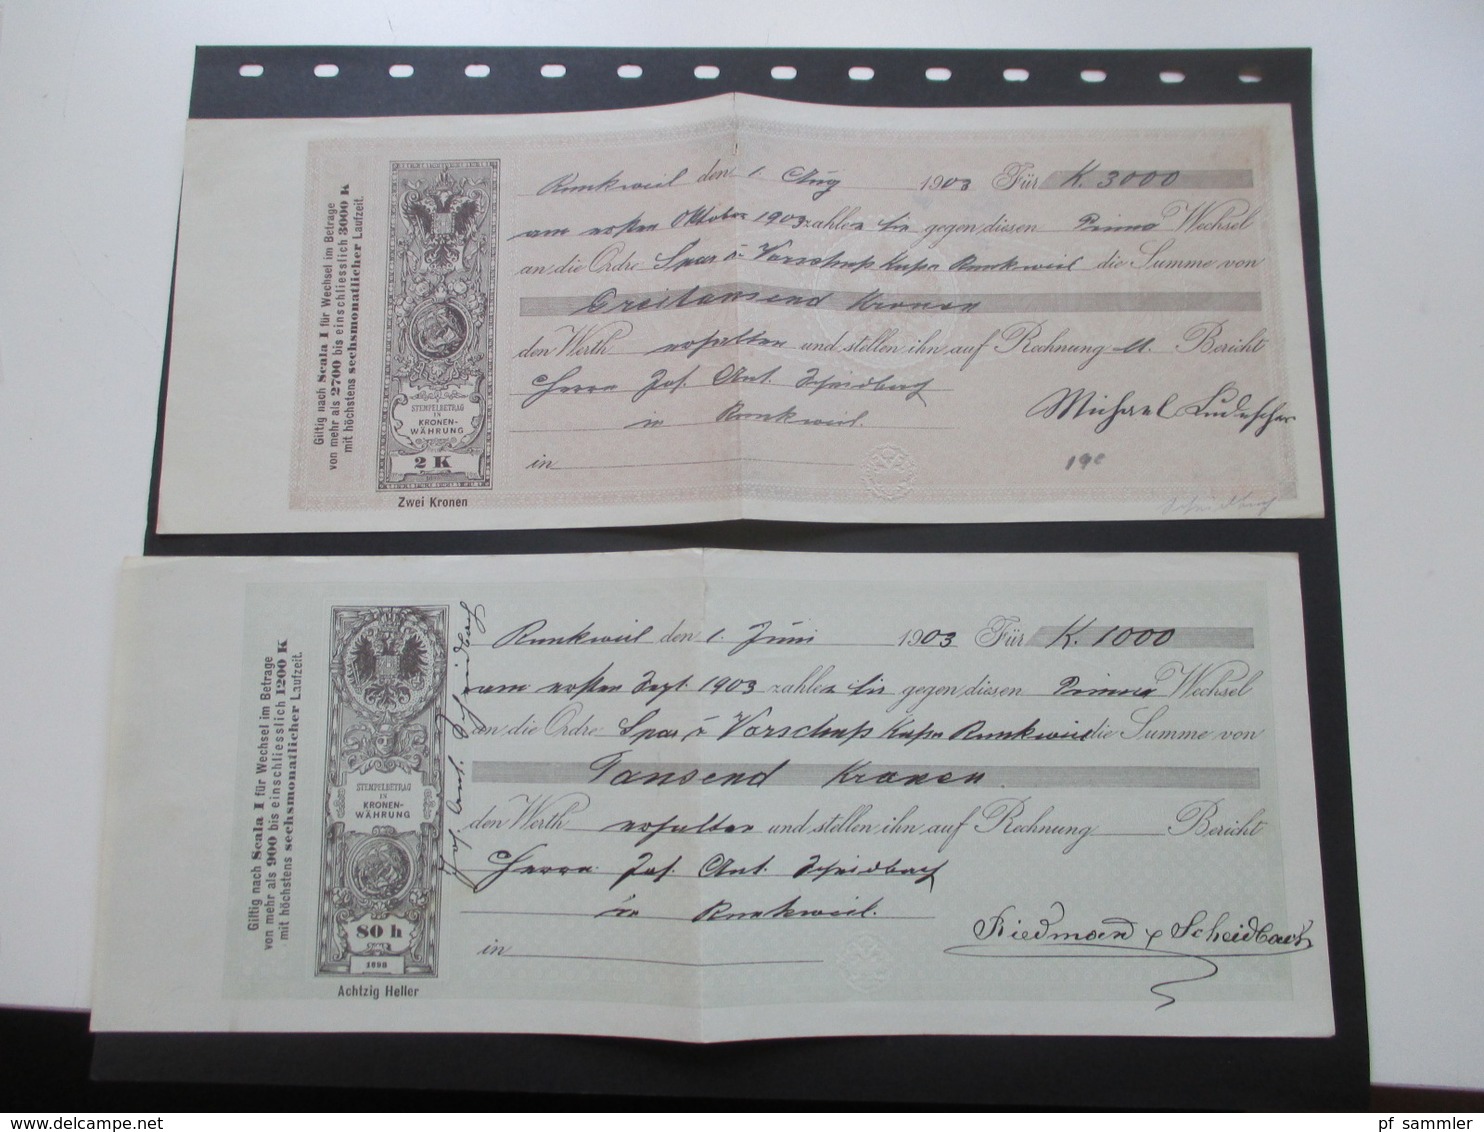 Giltig nach Scala I für Wechsel im Betrage
von mehr als 2700 bis einschliesslich 3000 K
mit höchstens sechsmonatlicher Laufzeit.
STEMPELBETRAG
IN
KRONEN-
WÄHRUNG
2 K
Zwei Kronen
Rankweil den 1. Aug 1903 Für K. 3000
am ersten Oktober 1903 zahlen Sie gegen diesen Prima Wechsel
an die Ordre Spar u Vorschuß Kassa Rankweil die Summe von
Dreitausend Kronen
den Werth erhalten und stellen ihn auf Rechnung u. Bericht
Herrn Jos. Ant. Scheidbach
in Rankweil.
Michael Ludescher
in
Giltig nach Scala I für Wechsel im Betrage
von mehr als 900 bis einschliesslich 1200 K
mit höchstens sechsmonatlicher Laufzeit.
STEMPELBETRAG
IN
KRONEN-
WÄHRUNG
80 h
1898
Achtzig Heller
Jos. Ant. Scheidbach
Rankweil den 1. Juni 1903 Für K. 1000
am ersten Sept. 1903 zahlen Sie gegen diesen Prima Wechsel
an die Ordre Spar u Vorschuß Kassa Rankweil die Summe von
Tausend Kronen
den Werth erhalten und stellen ihn auf Rechnung Bericht
Herrn Jos. Ant. Scheidbach
in Rankweil.
Riedmann & Scheidbach
in
delcampe.net
pf_sammler